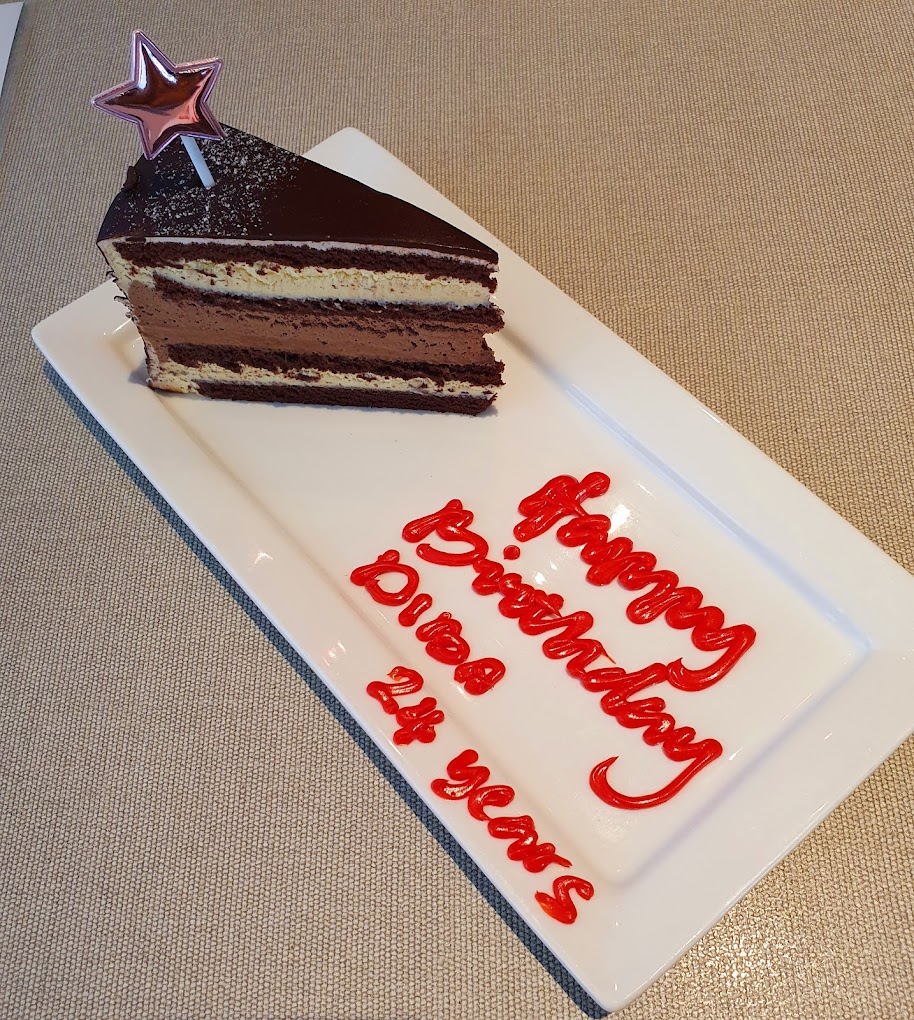 Happy
Birthday
DIBA
24 years